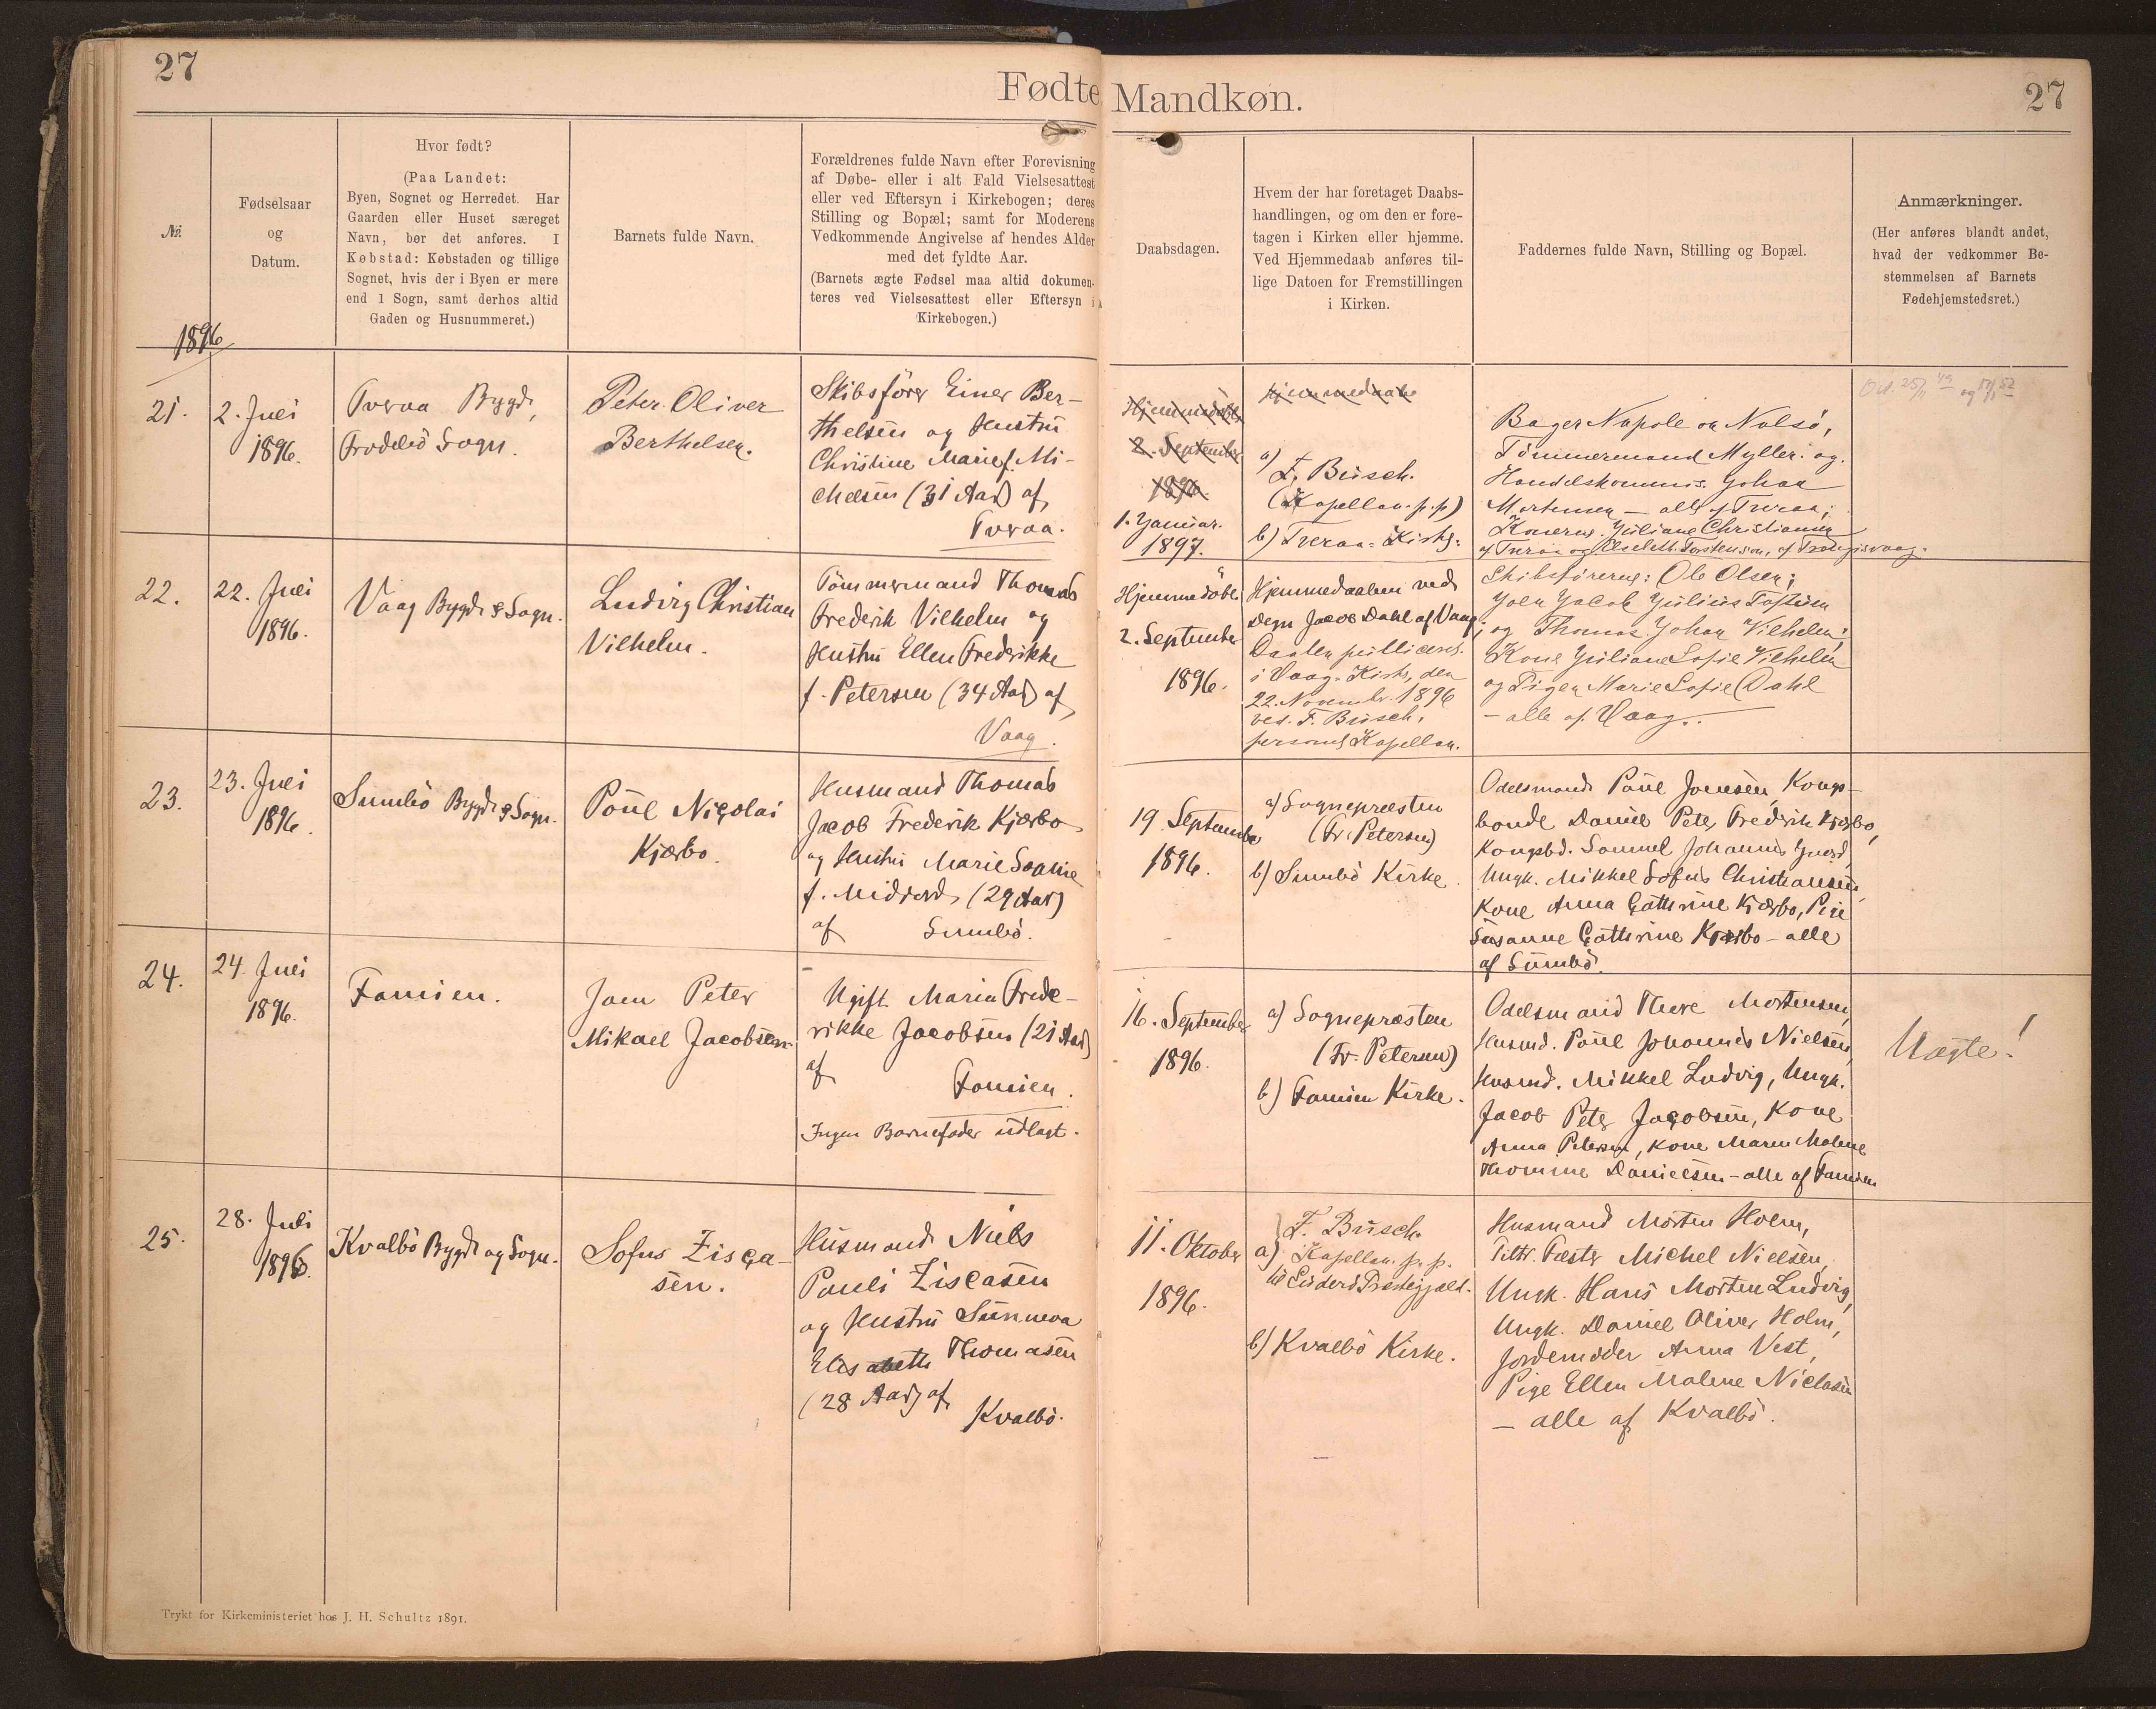 27
Fødte Mandkøn.
27
№
Fødselsaar
og
Datum.
Hvor født?
(Paa Landet:
Byen, Sognet og Herredet. Har
Gaarden eller Huset særeget
Navn, bør det anføres. I
Købstad: Købstaden og tillige
Sognet, hvis der i Byen er mere
end 1 Sogn, samt derhos altid
Gaden og Husnummeret.)
Barnets fulde Navn.
Forældrenes fulde Navn efter Forevisning
af Døbe- eller i alt Fald Vielsesattest
eller ved Eftersyn i Kirkebogen; deres
Stilling og Bopæl; samt for Moderens
Vedkommende Angivelse af hendes Alder
med det fyldte Aar.
(Barnets ægte Fødsel maa altid dokumen-
teres ved Vielsesattest eller Eftersyn i
Kirkebogen.)
Daabsdagen.
Hvem der har foretaget Daabs-
handlingen, og om den er fore-
tagen i Kirken eller hjemme.
Ved Hjemmedaab anføres til-
lige Datoen for Fremstillingen
i Kirken.
Faddernes fulde Navn, Stilling og Bopæl.
Anmærkninger.
(Her anføres blandt andet,
hvad der vedkommer Be-
stemmelsen af Barnets
Fødehjemstedsret.)
1896
21.
2. Juli
1896.
Tveraa Bygd,
Frodebö Sogn.
Peter Oliver
Berthelsen.
Skibsförer Einer Ber-
thelsen og Hustru
Christine Marie f. Mi-
chelsen (31 Aar) af
Tveraa.
Hjemmedöbt
2. September
1896.
1. Januar.
1897.
Hjemmedaab
a) F. Busch.
(Kapellan. p. p)
b) Tveraa Kirke.
Bager Napole on Nolsö,
Tömmermand Myller. og.
Handelskommis. Johan
Mortensen — alle af Tveraa;
Konerne. Juliane Christiansen
af Tveraa og Elsebeth Torstensen, af Trangisvaag.
22.
22. Juli
1896.
Vaag Bygd & Sogn.
Ludvig Christian
Vilhelm.
Tömmermand Thomas
Frederik Vilhelm og
Hustru Ellen Frederikke
f. Petersen (34 Aar) af
Vaag.
Hjemmedöbt
2. September
1896.
Hjemmedaaben ved
Degn Jacob Dahl af Vaag;
Daaben publiceret.
i Vaag. Kirke, den
22. Novembr. 1896
ved. F. Busch,
personel Kapellan.
Skibsförerne: Ole Olsen;
Joen Jacob Julius Toftum
og Thomas Johan Vilhelm;
Kone Juliane Sofie Vilhelm
og Pigen Marie Sofie Dahl
— alle af Vaag.
23.
23. Juli
1896.
Sumbö Bygd & Sogn.
Poul Nicolai
Kjærbo.
Husmand Thomas
Jacob Frederik Kjærbo
og Hustru Marie Sophie
f. Midjord (29 Aar)
af Sumbö.
19. September
1896.
a) Sognepræsten
(Fr. Petersen)
b) Sumbö Kirke.
Odelsmand Poul Joensen, Kongs-
bonde Daniel Peter Frederik Kjærbo,
Kongsbd. Samuel Johannes
Ungk. Mikkel Sofus Christiansen,
Kone Anna Cathrine Kjærbo, Pige
Susanne Cathrine Kjærbo – alle
af Sumbö.
24.
24. Juli
1896.
Famien.
Joen Peter
Mikael Jacobsen
Ugift Maria Frede-
rikke Jacobsen (21 Aar)
af Famien.
Ingen Barnefader udlagt.
16. September
1896.
a) Sognepræsten
(Fr. Petersen)
b) Famien Kirke.
Odelsmand Thore Mortensen,
Husmd. Poul Johannes Nielsen,
Husmd. Mikkel Ludvig, Ungk.
Jacob Peter Jacobsen, Kone
Anna Petersen, Kone Maren Malene
Thomine Danielsen – alle af Famien
Uægte!
25.
28. Juli
1896.
Kvalbö Bygd og Sogn.
Sofus Zisca-
sen.
Husmand Niels
Pauli Ziscasen
og Hustru Sunneva
Elisabeth Thomasen
(28 Aar) af
Kvalbö.
11. Oktober
1896.
a) F. Busch.
Kapellan. p. p.
til Suderö Præstegjæld.
b) Kvalbö Kirke.
Husmand Morten Holm,
Fæster Michel Nielsen,
Ungk. Hans Morten Ludvig,
Ungk. Daniel Oliver Holm,
Jordemoder Anna Vest,
Pige Ellen Malene Niclasen
— alle af Kvalbö.
Trykt for Kirkeministeriet hos J. H. Schultz 1891.